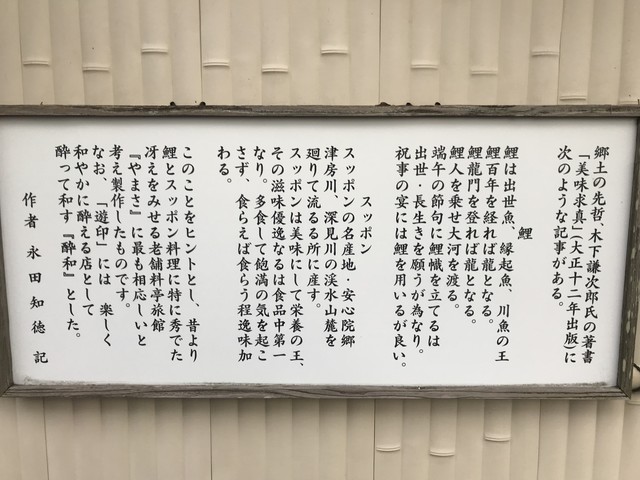 郷土の先哲、木下謙次郎氏の著書
「美味求真」（大正十二年出版）に
次のような記事がある。
鯉
鯉は出世魚、縁起魚、川魚の王
鯉百年を経れば龍となる。
鯉龍門を登れば龍となる。
鯉人を乗せ大河を渡る。
端午の節句に鯉幟を立てるは
出世・長生きを願うが為なり。
祝事の宴には鯉を用いるが良い。
スッポン
スッポンの名産地・安心院郷
津房川、深見川の渓水山麓を
廻りて流るる所に産す。
スッポンは美味にして栄養の王、
その滋味優逸なるは食品中第一
なり。多食して飽満の気を起こ
さず、食らえば食らう程逸味加
わる。
このことをヒントとし、昔より
鯉とスッポン料理に特に秀でた
冴えをみせる老舗料亭旅館
『やまさ』に最も相応しいと
考え製作したものです。
なお、「遊印」には 楽しく
和やかに酔える店として
酔って和す『酔和』とした。
作者 永田知徳 記